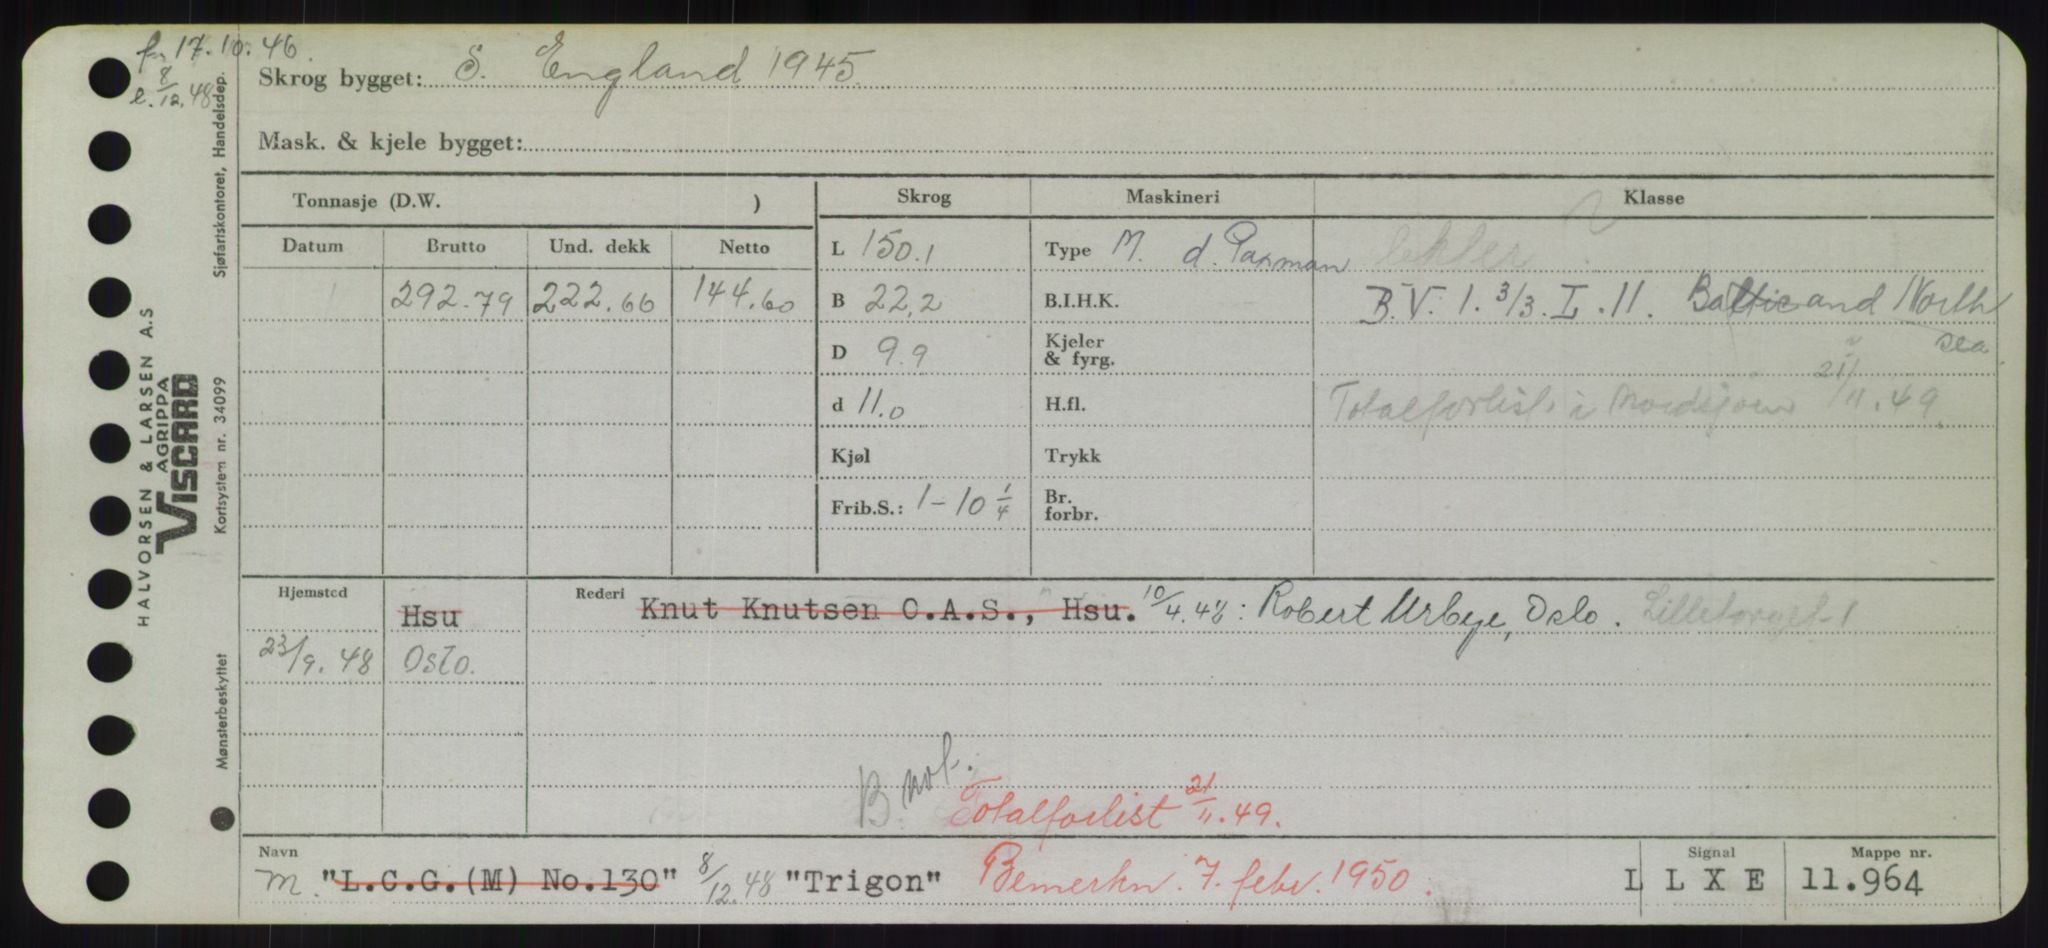 fr. 17.10.46.
e. 8/12.48
Skrog bygget: S. England 1945
Mask. & kjele bygget:
Tonnasje (D.W. )
Skrog Maskineri Klasse
Datum Brutto Und. dekk Netto
L 150.1 Type M. d. Paxman
292.79 222.66 144.60
B 22,2 B.I.H.K. B.V. I. 3/3. L. II. Baltic and North sea.
D 9.9 Kjeler & fyrg.
d 11.0 H.fl. Totalforlist i Nordsjøen 21/11.49.
Kjøl Trykk
Frib.S.: 1-10 1/4 Br. forbr.
Hjemsted Hsu Rederi Knut Knutsen O.A.S., Hsu. 10/4.48: Robert Urbye, Oslo. Lilletorget 1
23/9.48 Oslo.
B. not.
Totalforlist 21/11.49.
Navn Signal Mappe nr.
M. "L.C.G.(M) No.130" 8/12.48 "Trigon" Bemerkn. 7. febr. 1950. L L X E 11.964
HALVORSEN & LARSEN A.S
AGRIPPA
VISCARD
Sjøfartskontoret, Handelsdep.
Kortsystem nr. 34099
Mønsterbeskyttet